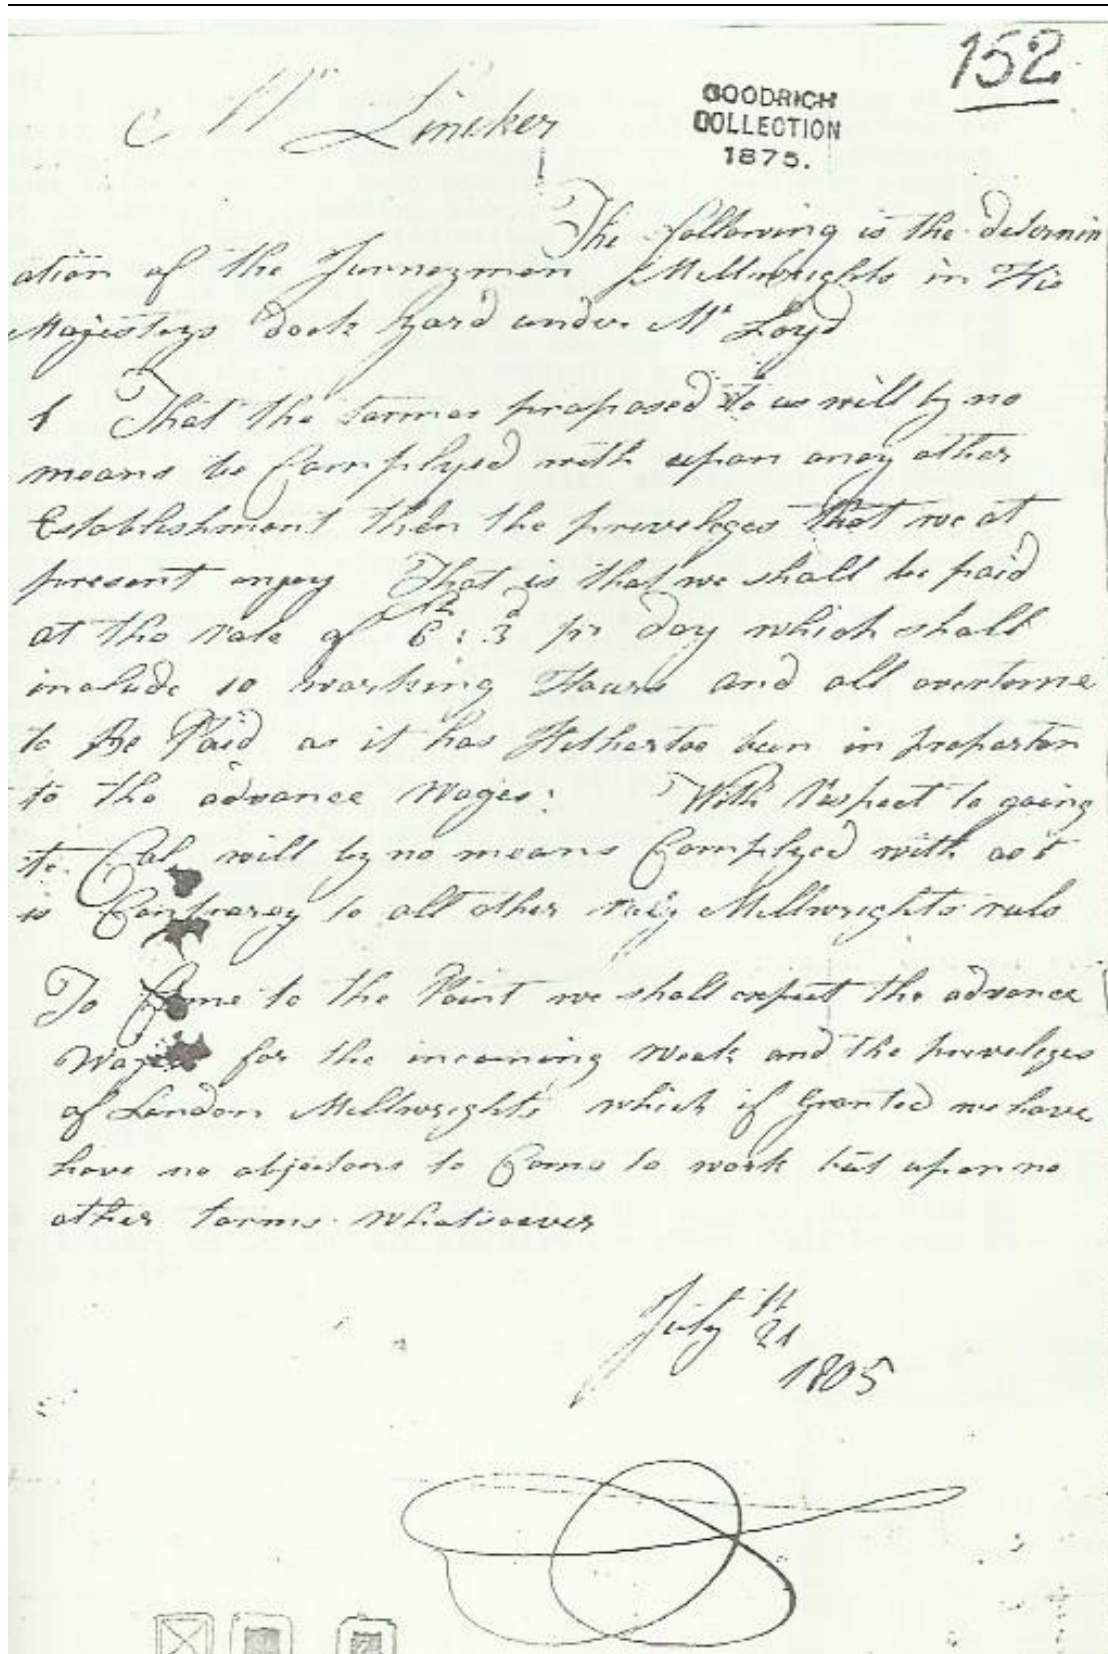 152
GOODRICH
COLLECTION
1875.
Mr Lincker
The following is the determin
ation of the Jurnezmen Millwrights in His
Majestays dock Yard under Mr Loyd
1 That the tarmes proposed to us will by no
means be Complyed with upon anay other
Establishment then the preveleges that we at
present enjoy That is that we shall be paid
at the rate of 6sh : 3d pr day which shall
include 10 working Hours and all overtime
to Be Paid as it has Hithertoo been in proparton
to the advance Wages: With Respect to going
to Cal, will by no means Complyed with as t
is Contrarey to all other Millwrights ruls
To Come to the Point we shall expect the advance
Wages for the incaming week and the preveleges
of London Millwrights which if Granted we have
have no objectons to Come to work but upon no
other tarms whatsoever
July 21
1805